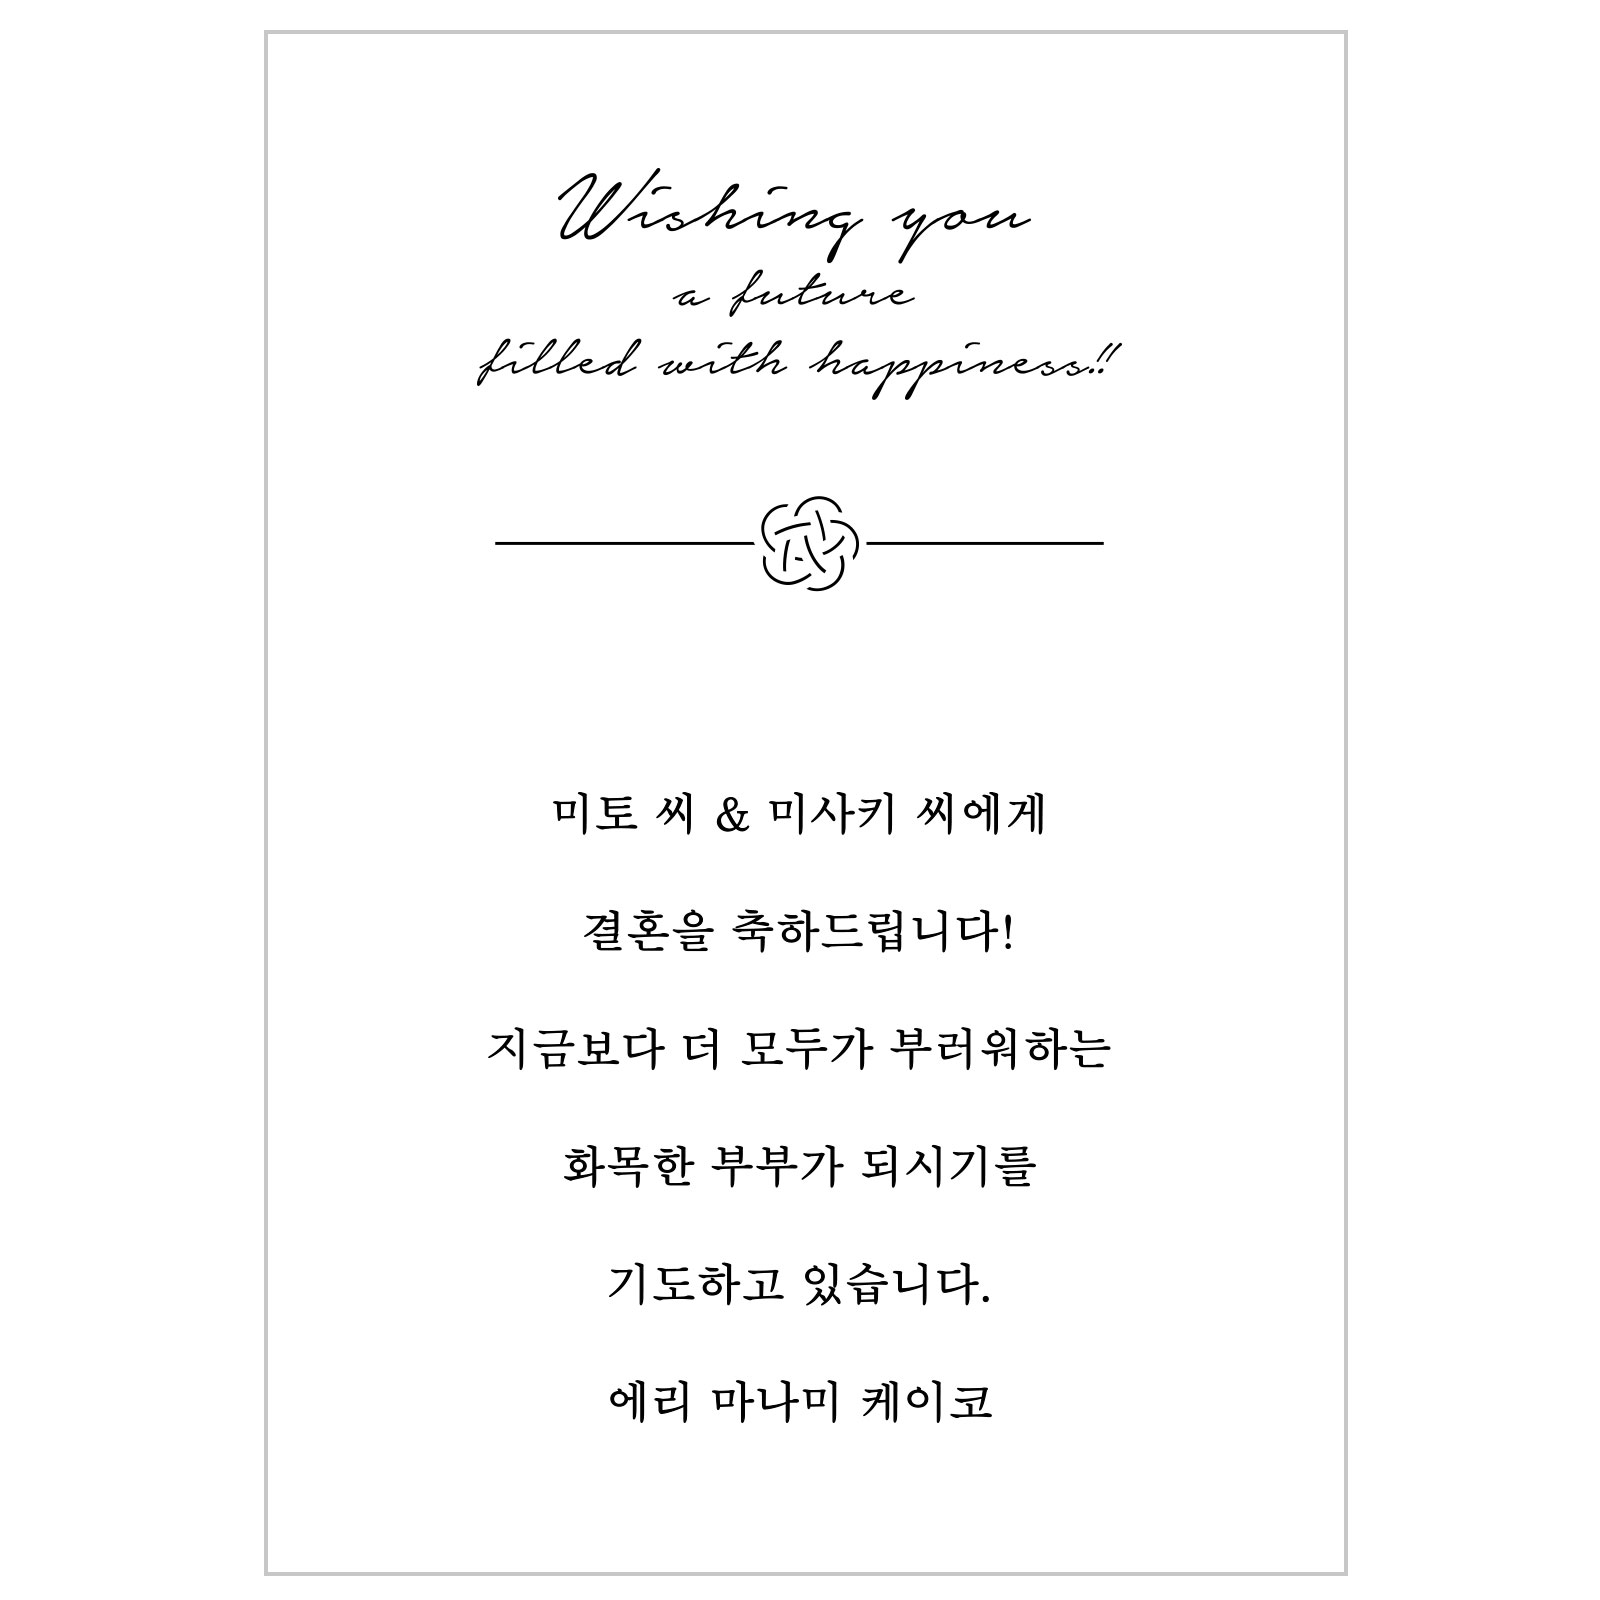 Wishing you
a future
filled with happiness!!
미토 씨 & 미사키 씨에게
결혼을 축하드립니다!
지금보다 더 모두가 부러워하는
화목한 부부가 되시기를
기도하고 있습니다.
에리 마나미 케이코